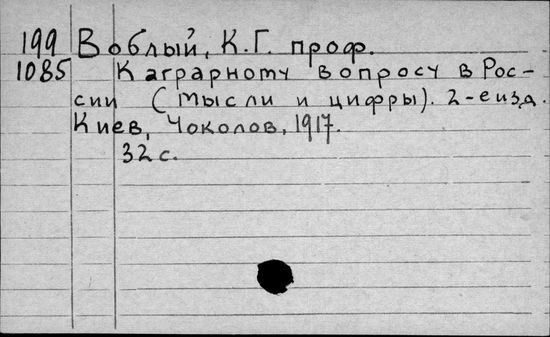 199 Воблый, К.Г. проф.
1085 К аграрному вопросу в Рос-
сии (Мысли и цифры). 2-е изд.
Киев, Чоколов, 1917.
32 с.